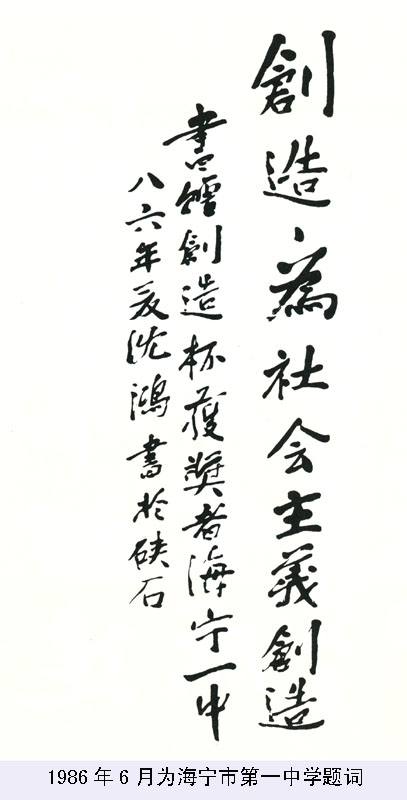 創造、為社会主義創造
書贈創造杯獲奬者海宁一中
八六年夏沈鴻書於硤石
1986年6月为海宁市第一中学题词